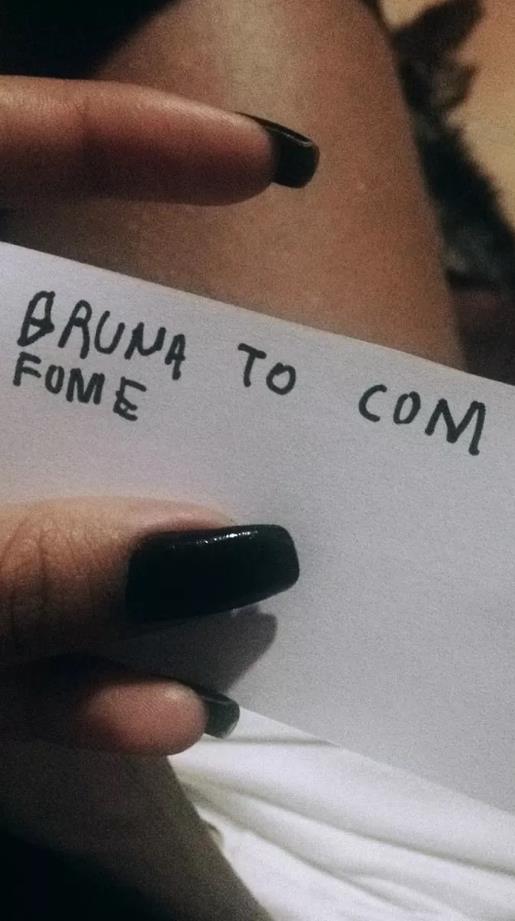 BRUNA TO COM
FOME